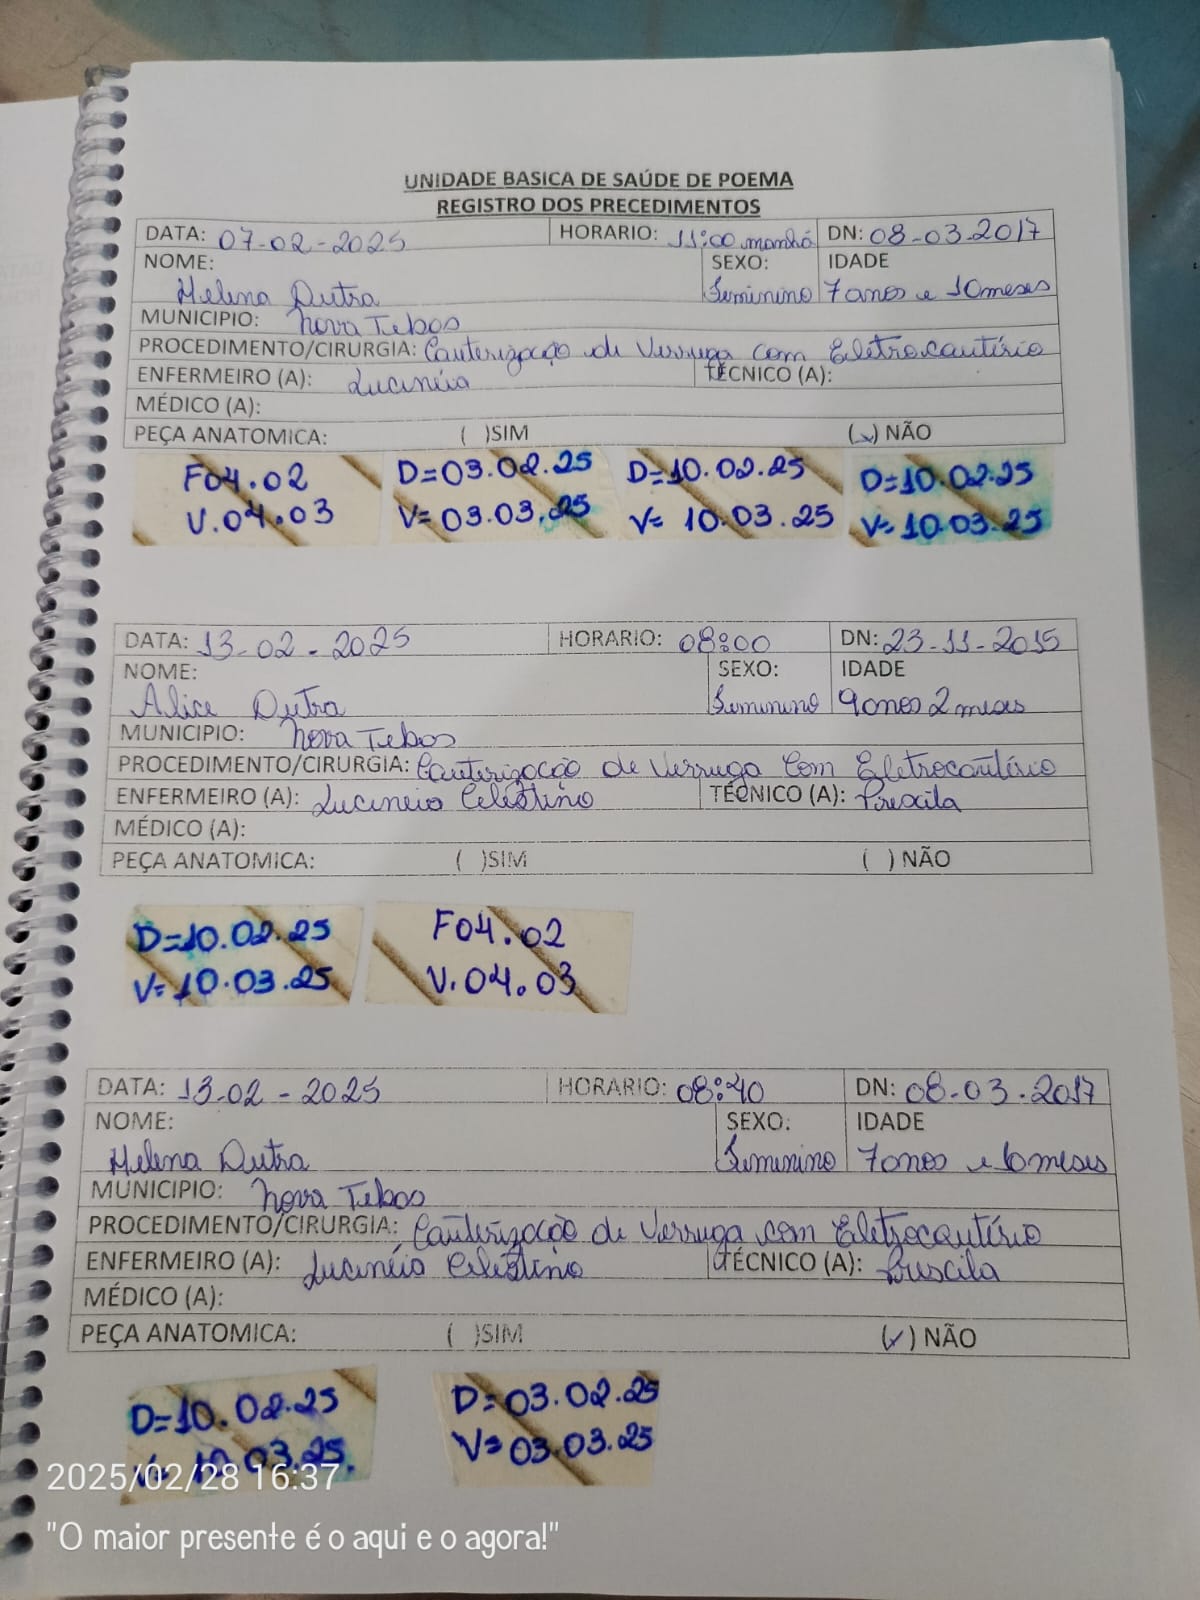 UNIDADE BASICA DE SAÚDE DE POEMA
REGISTRO DOS PRECEDIMENTOS
DATA: 07-02-2025 HORARIO: 11:00 manhã DN: 08-03-2017
NOME: SEXO: IDADE
Helena Dutra Feminino 7 anos e 10 meses
MUNICIPIO: Nova Tebas
PROCEDIMENTO/CIRURGIA: Cauterização de Verruga com Eletrocautério
ENFERMEIRO (A): Lucinéia TÉCNICO (A):
MÉDICO (A):
PEÇA ANATOMICA: ( )SIM (x) NÃO
F04.02 D=03.02.25 D=10.02.25 D=10.02.25
V.04.03 V=03.03.25 V=10.03.25 V=10.03.25
DATA: 13-02-2025 HORARIO: 08:00 DN: 23-11-2015
NOME: SEXO: IDADE
Alice Dutra Feminino 9 anos 2 meses
MUNICIPIO: Nova Tebas
PROCEDIMENTO/CIRURGIA: Cauterização de Verruga Com Eletrocautério
ENFERMEIRO (A): Lucineia Celestino TÉCNICO (A): Priscila
MÉDICO (A):
PEÇA ANATOMICA: ( )SIM ( ) NÃO
D=10.02.25 F04.02
V=10.03.25 V.04.03
DATA: 13-02-2025 HORARIO: 08:40 DN: 08-03-2017
NOME: SEXO: IDADE
Helena Dutra Feminino 7 anos e 10 meses
MUNICIPIO: Nova Tebas
PROCEDIMENTO/CIRURGIA: Cauterização de Verruga com Eletrocautério
ENFERMEIRO (A): Lucinéia Celestino TÉCNICO (A): Priscila
MÉDICO (A):
PEÇA ANATOMICA: ( )SIM (x) NÃO
D=10.02.25 D=03.02.25
V=10.03.25. V=03.03.25
2025/02/28 16:37
"O maior presente é o aqui e o agora!"